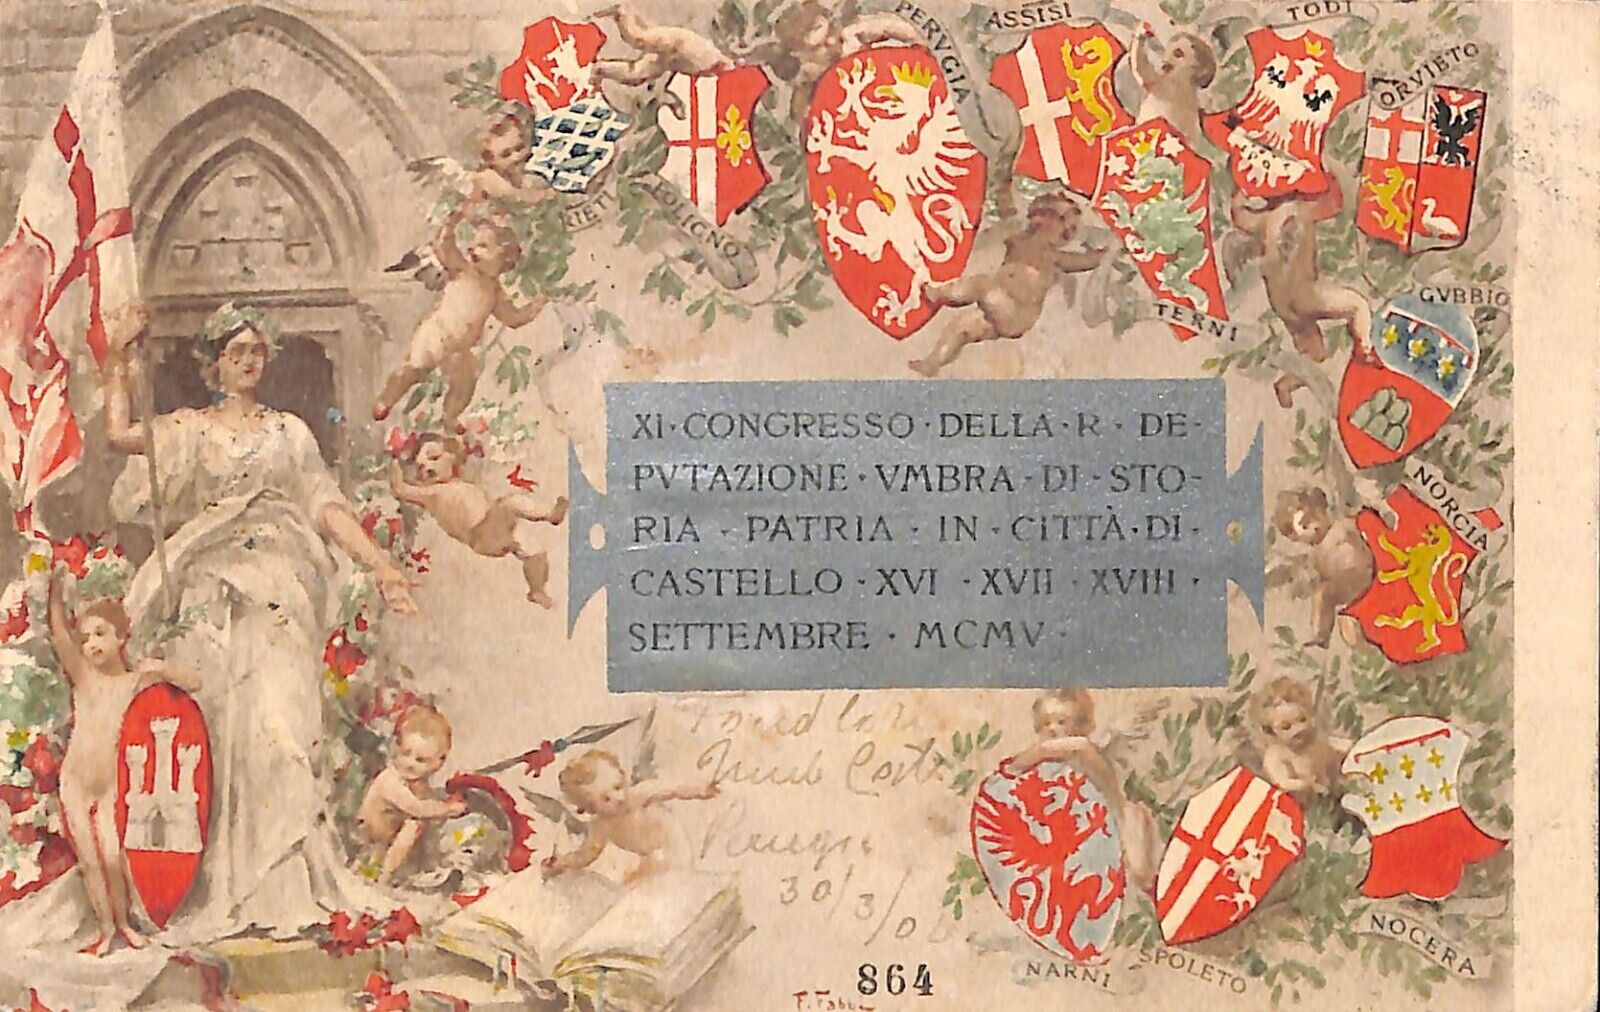 RIETI
FOLIGNO
PERVGIA
ASSISI
TODI
ORVIETO
TERNI
GVBBIO
NORCIA
XI·CONGRESSO·DELLA·R·DE-
PVTAZIONE·VMBRA·DI·STO-
RIA·PATRIA·IN·CITTÀ·DI·
CASTELLO·XVI·XVII·XVIII·
SETTEMBRE·MCMV·
30/3/06
NARNI
SPOLETO
NOCERA
864